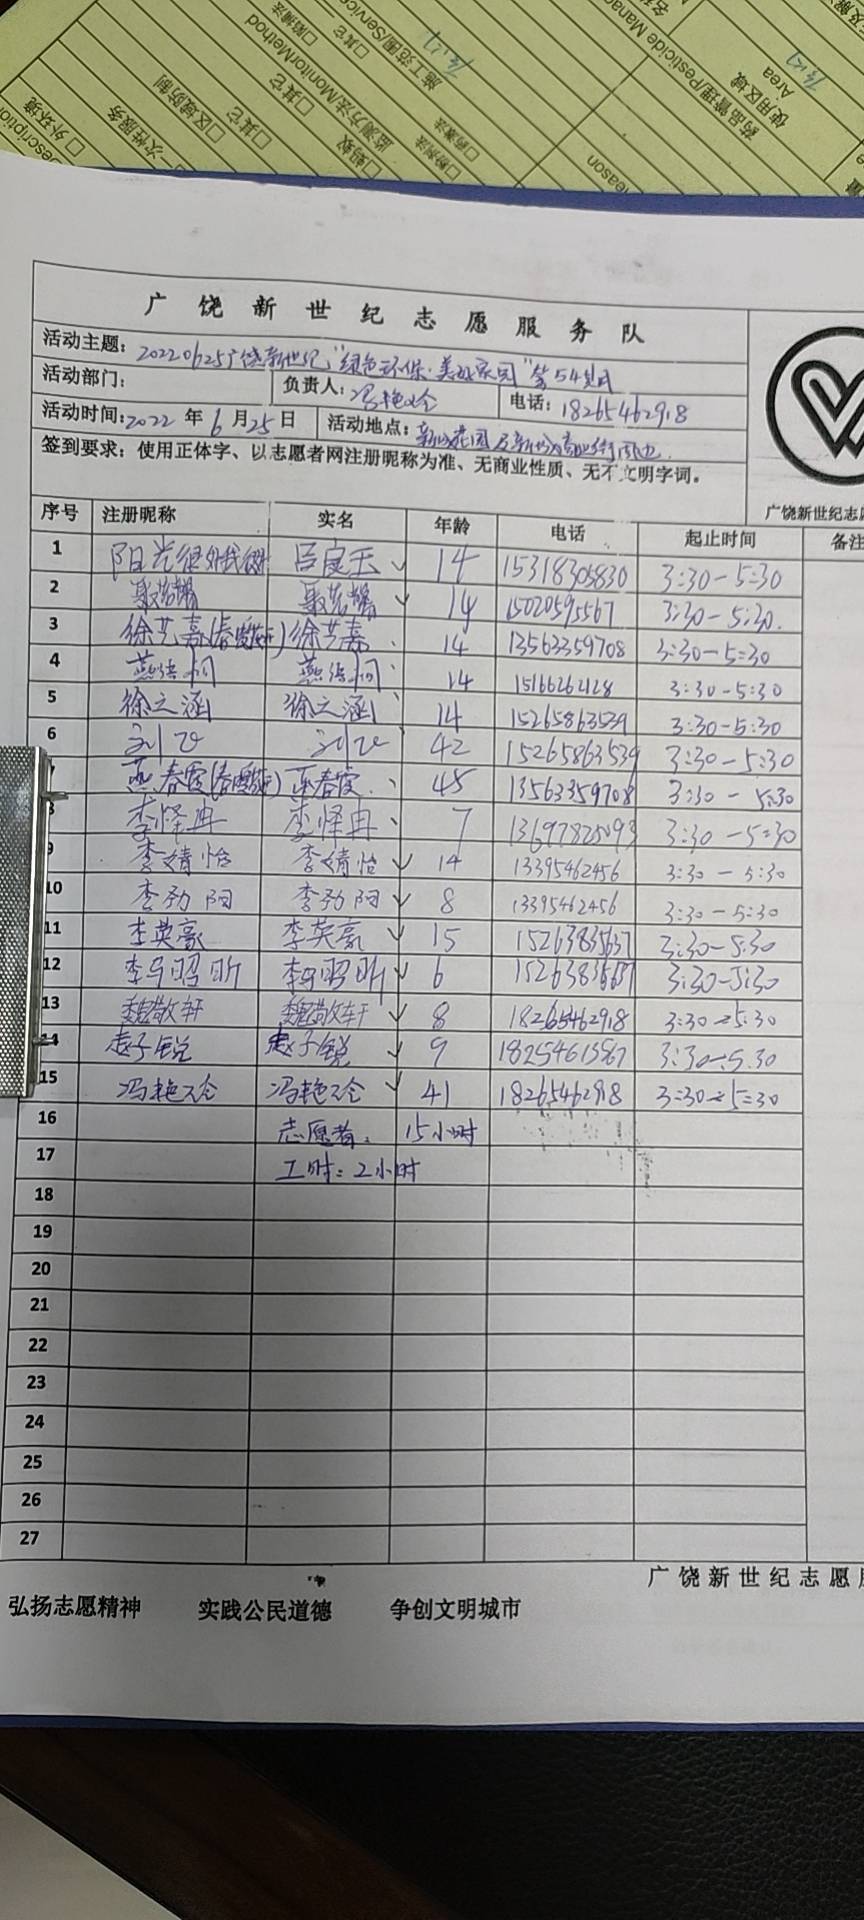 外环境
一次性服务
区域防制
其它
监测方法/MonitorMethod
其它
粘捕法
其它
药品管理/Pesticide Mana
使用区域
Area
广饶新世纪志愿服务队
活动主题：20220625广饶新世纪"绿色环保·美好家园"第54期
活动部门：
负责人：冯艳玲
电话：18265462918
活动时间：2022年6月25日
活动地点：
签到要求：使用正体字、以志愿者网注册昵称为准、无商业性质、无不文明字词。
广饶新世纪志愿
序号 注册昵称 实名 年龄 电话 起止时间 备注
1 14 15318305830 3:30-5:30
2 14 15020595567 3:30-5:30.
3 徐艺嘉 徐艺嘉 14 13563359708 3:30-5:30
4 14 15166262128 3:30-5:30
5 徐之涵 徐之涵 14 3:30-5:30
6 42 15265863539 3:30-5:30
7 燕春霞 燕春霞 45 13563359708 3:30-5:30
8 李怿冉 李怿冉 7 13697825093 3:30-5:30
9 李婧怡 李婧怡 14 13395462456 3:30-5:30
10 李劲阳 李劲阳 8 13395462456 3:30-5:30
11 李英豪 李英豪 15 15263835637 3:30-5:30
12 6 3:30-5:30
13 魏敬轩 魏敬轩 8 18265462918 3:30-5:30
14 志子锐 志子锐 9 3:30-5:30
15 冯艳玲 冯艳玲 41 18265462918 3:30-5:30
16 志愿者：15小时
17 工时：2小时
18
19
20
21
22
23
24
25
26
27
广饶新世纪志愿
弘扬志愿精神 实践公民道德 争创文明城市